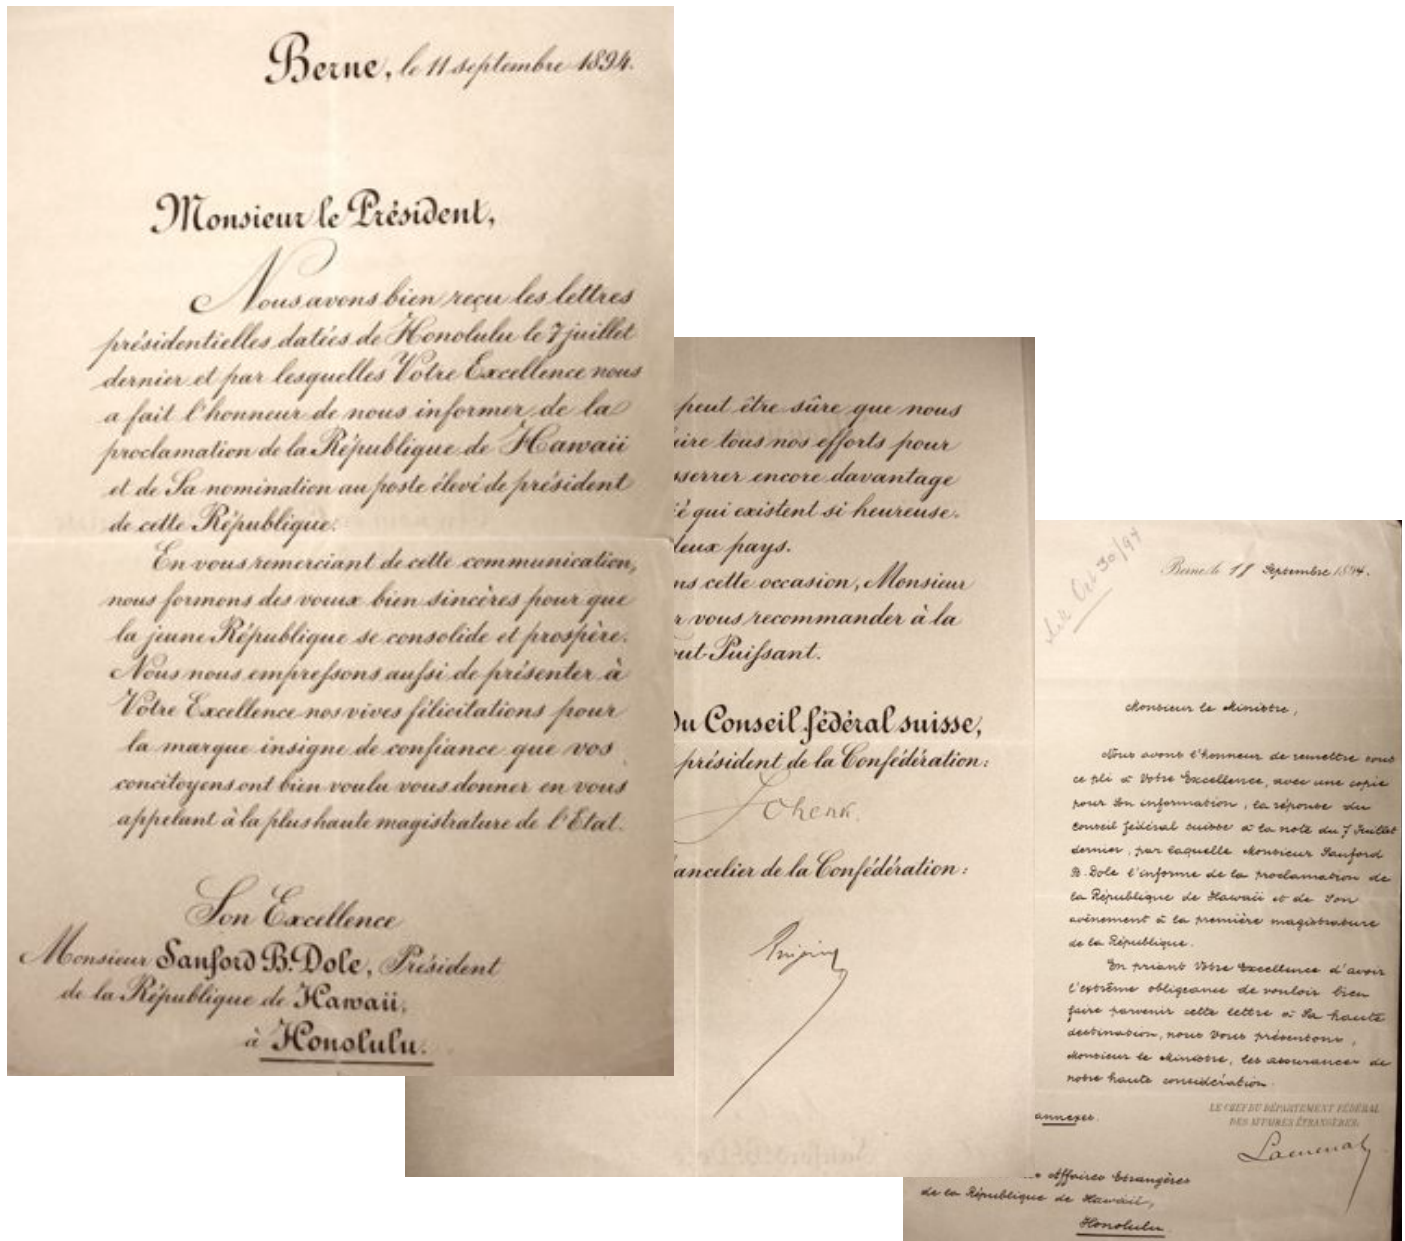 Berne, le 11 septembre 1894.
Monsieur le Président,
Nous avons bien reçu les lettres
présidentielles datées de Honolulu le 7 juillet
dernier et par lesquelles Votre Excellence nous
a fait l'honneur de nous informer de la
proclamation de la République de Hawaii
et de Sa nomination au poste élevé de président
de cette République.
En vous remerciant de cette communication,
nous formons des voeux bien sincères pour que
la jeune République se consolide et prospère.
Nous nous empressons aussi de présenter à
Votre Excellence nos vives félicitations pour
la marque insigne de confiance que vos
concitoyens ont bien voulu vous donner en vous
appelant à la plus haute magistrature de l'Etat.
Son Excellence
Monsieur Sanford B. Dole, Président
de la République de Hawaii,
à Honolulu.
peut être sûre que nous
ire tous nos efforts pour
sserrer encore davantage
é qui existent si heureuse-
deux pays.
ns cette occasion, Monsieur
r vous recommander à la
out-Puissant.
du Conseil fédéral suisse,
président de la Confédération:
Schenk.
ancelier de la Confédération:
Ringier
Oct 30/94
Berne le 11 Septembre 1894.
Monsieur le Ministre,
Nous avons l'honneur de remettre sous
ce pli à Votre Excellence, avec une copie
pour Son information, la réponse du
Conseil fédéral suisse à la note du 7 Juillet
dernier, par laquelle Monsieur Sanford
B. Dole l'informe de la proclamation de
la République de Hawaii et de Son
avènement à la première magistrature
de la République.
En priant Votre Excellence d'avoir
l'extrême obligeance de vouloir bien
faire parvenir cette lettre à Sa haute
destination, nous Vous présentons,
Monsieur le Ministre, les assurances de
notre haute considération.
LE CHEF DU DÉPARTEMENT FÉDÉRAL
DES AFFAIRES ÉTRANGÈRES:
annexes.
Lachenal
Affaires Etrangères
de la République de Hawaii,
Honolulu